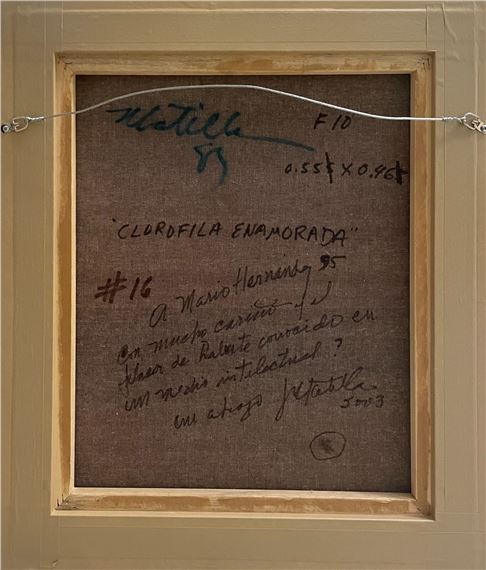 Matilla
89
F 10
0.55 X 0.46
"CLOROFILA ENAMORADA"
#16
A Mario Hernández
Con mucho cariño y el
placer de haberte conocido en
un medio intelectual ?
un abrazo Matilla
2003